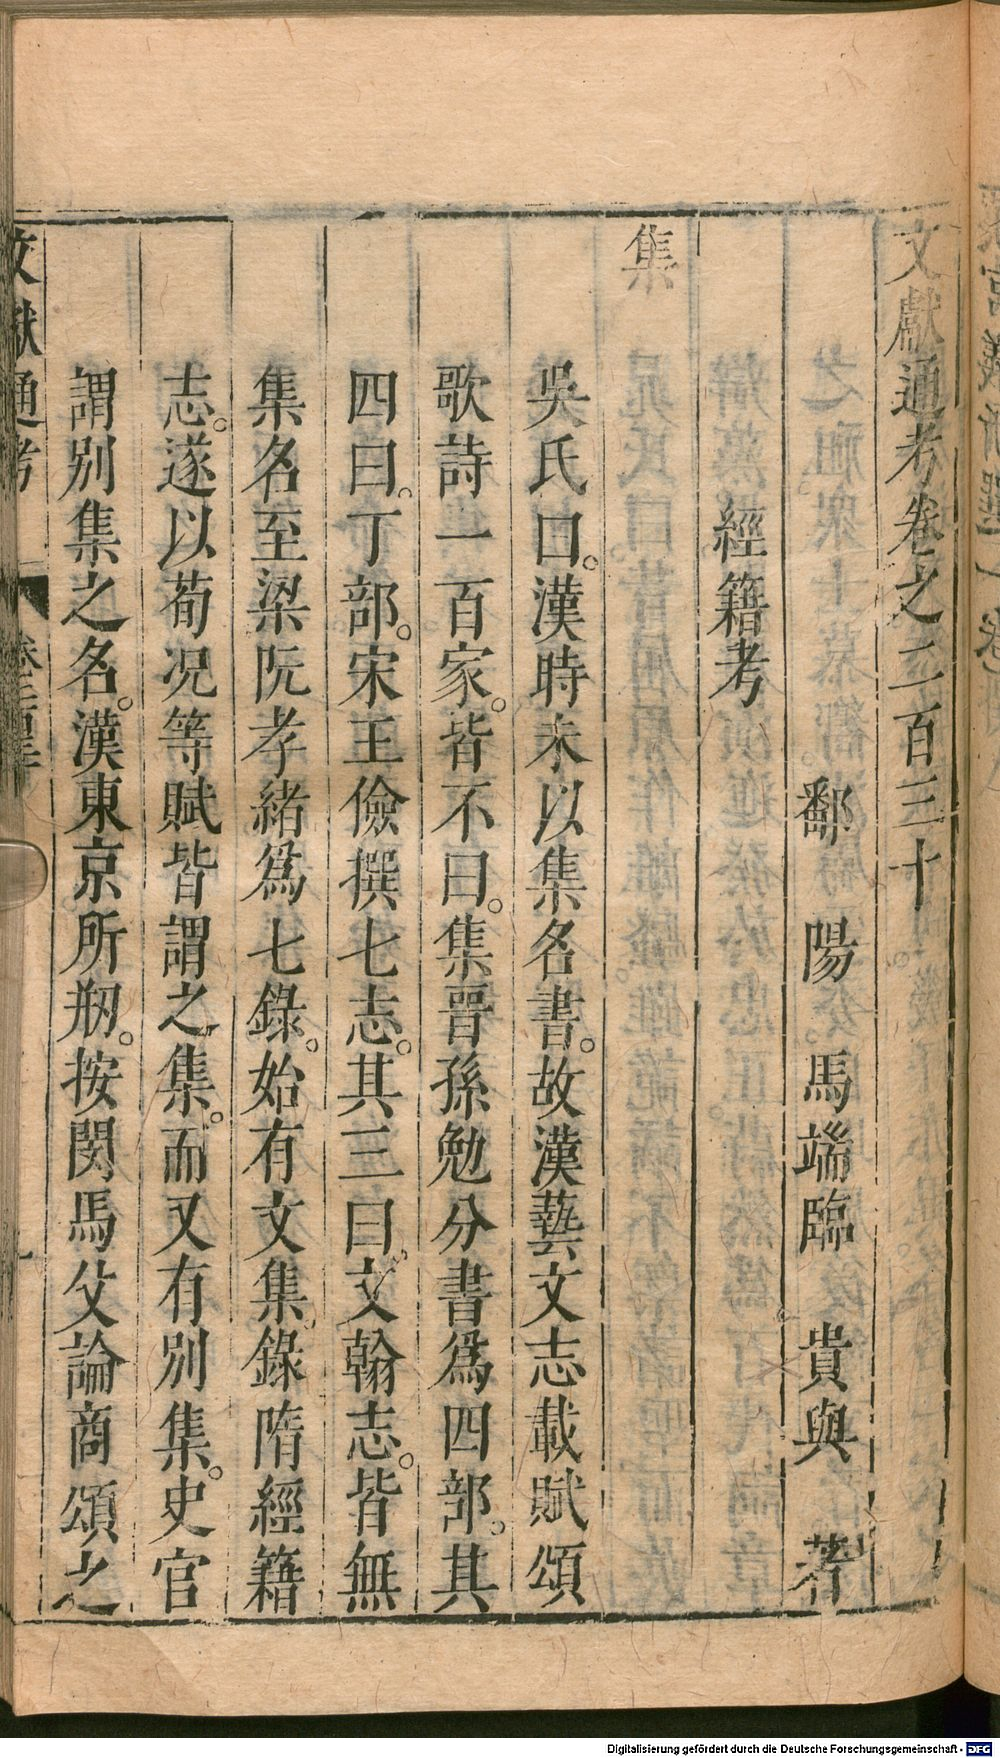 文獻通考卷之二百三十
鄱陽馬端臨貴與著
經籍考
集
吳氏曰。漢時未以集名書。故漢藝文志載賦頌
歌詩一百家。皆不曰。集晉孫勉分書爲四部。其
四曰。丁部。宋王儉撰七志。其三曰。文翰志。皆無
集名至梁阮孝緒爲七錄。始有文集錄隋經籍
志。遂以荀况等賦皆謂之集。而又有別集。史官
謂別集之名。漢東京所剏。按閔馬父論商頌之
文獻通考
Digitalisierung gefördert durch die Deutsche Forschungsgemeinschaft - DFG